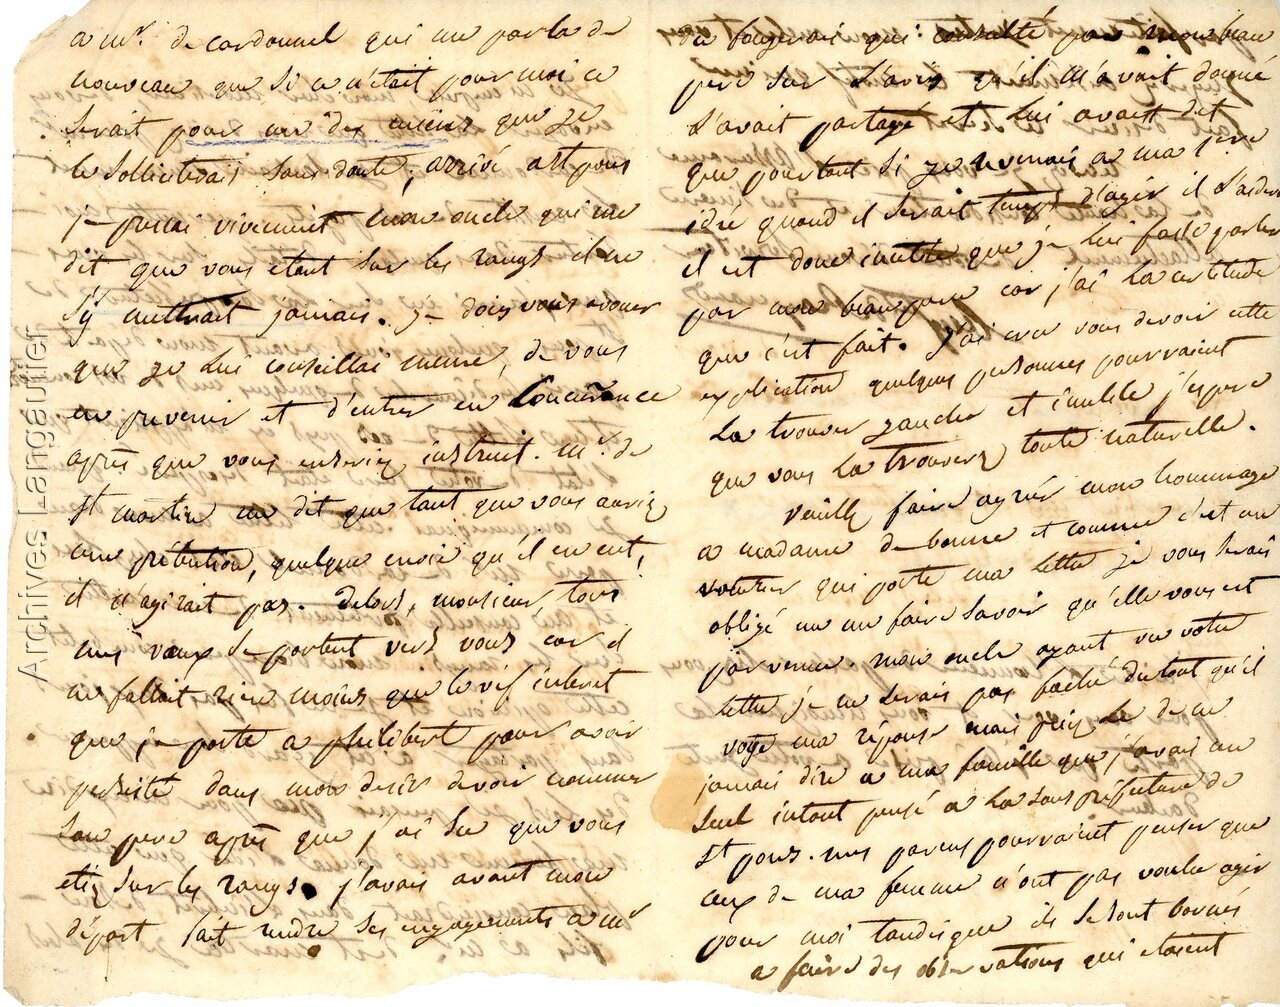 a mr. de cardonnel qui me parla de
nouveau que si ce n'était pour moi ce
serait pour un des miens que je
le solliciterais sans doute; arrivé a st pons
je pressai vivement mon oncle qui me
dit que vous etant sur les rangs il ne
s'y mettrait jamais. je dois vous avouer
que je lui conseillai meme, de vous
en prevenir et d'entrer en concurrance
après que vous en seriez instruit. mr. de
st martin me dit que tant que vous auriez
une prétention, quelque envie qu'il en eut,
il n'agirait pas. delors, monsieur, tous
mes vœux se portent vers vous car il
ne fallait rien moins que le vif interet
que je porte a philibert pour avoir
persisté dans mon desir de voir nommer
son pere après que j'ai su que vous
etiez sur les rangs. j'avais avant mon
départ fait rendre ses engagements a mr
du fougerais qui consulté par mon beau
pere sur l'avis qu'il m'avait donné
l'avait partagé et lui avait dit
que pourtant si je revenais a ma 1ere
idée quand il serait temps d'agir il s'aiderait
il est donc inutile que je lui fasse parler
par mon beau pere car j'ai la certitude
que c'est fait. j'ai cru vous devoir cette
explication quelques personnes pourraient
la trouver gauche et inutile j'espere
que vous la trouverez toute naturelle.
veuillez faire agréer mon hommage
a madame de bonne et comme c'est un
voiturier qui porte ma lettre je vous serais
obligé de me faire savoir qu'elle vous est
parvenue. mon oncle ayant vu votre
lettre je ne serais pas faché du tout qu'il
voye ma réponse mais priez le de ne
jamais dire a ma famille que j'avais un
seul instant pensé a la sous préfecture de
st pons. mes parens pourraient penser que
ceux de ma femme n'ont pas voulu agir
pour moi tandis que ils se sont bornés
a faire des observations qui etaient
Archives Langautier